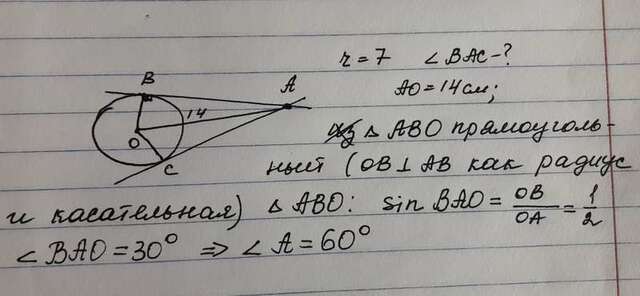 r = 7 ∠BAC - ?
B
A
AO = 14 см;
14
O
C
△ ABO прямоуголь-
ный (OB ⊥ AB как радиус
и касательная) △ ABO: sin BAO = OB/OA = 1/2
∠BAO = 30° ⇒ ∠A = 60°